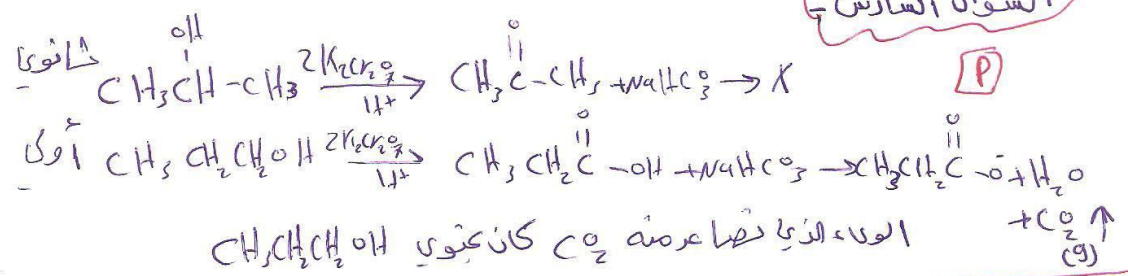 السؤال السادس -
P
ثانوي CH₃CH(OH)-CH₃ 2K₂Cr₂O₇/H⁺ → CH₃C(=O)-CH₃ + NaHCO₃ → X
أولي CH₃CH₂CH₂OH 2K₂Cr₂O₇/H⁺ → CH₃CH₂C(=O)-OH + NaHCO₃ → CH₃CH₂C(=O)-O⁻ + H₂O
+ CO₂(g) ↑
الوعاء الذي تصاعد منه CO₂ كان يحتوي CH₃CH₂CH₂OH